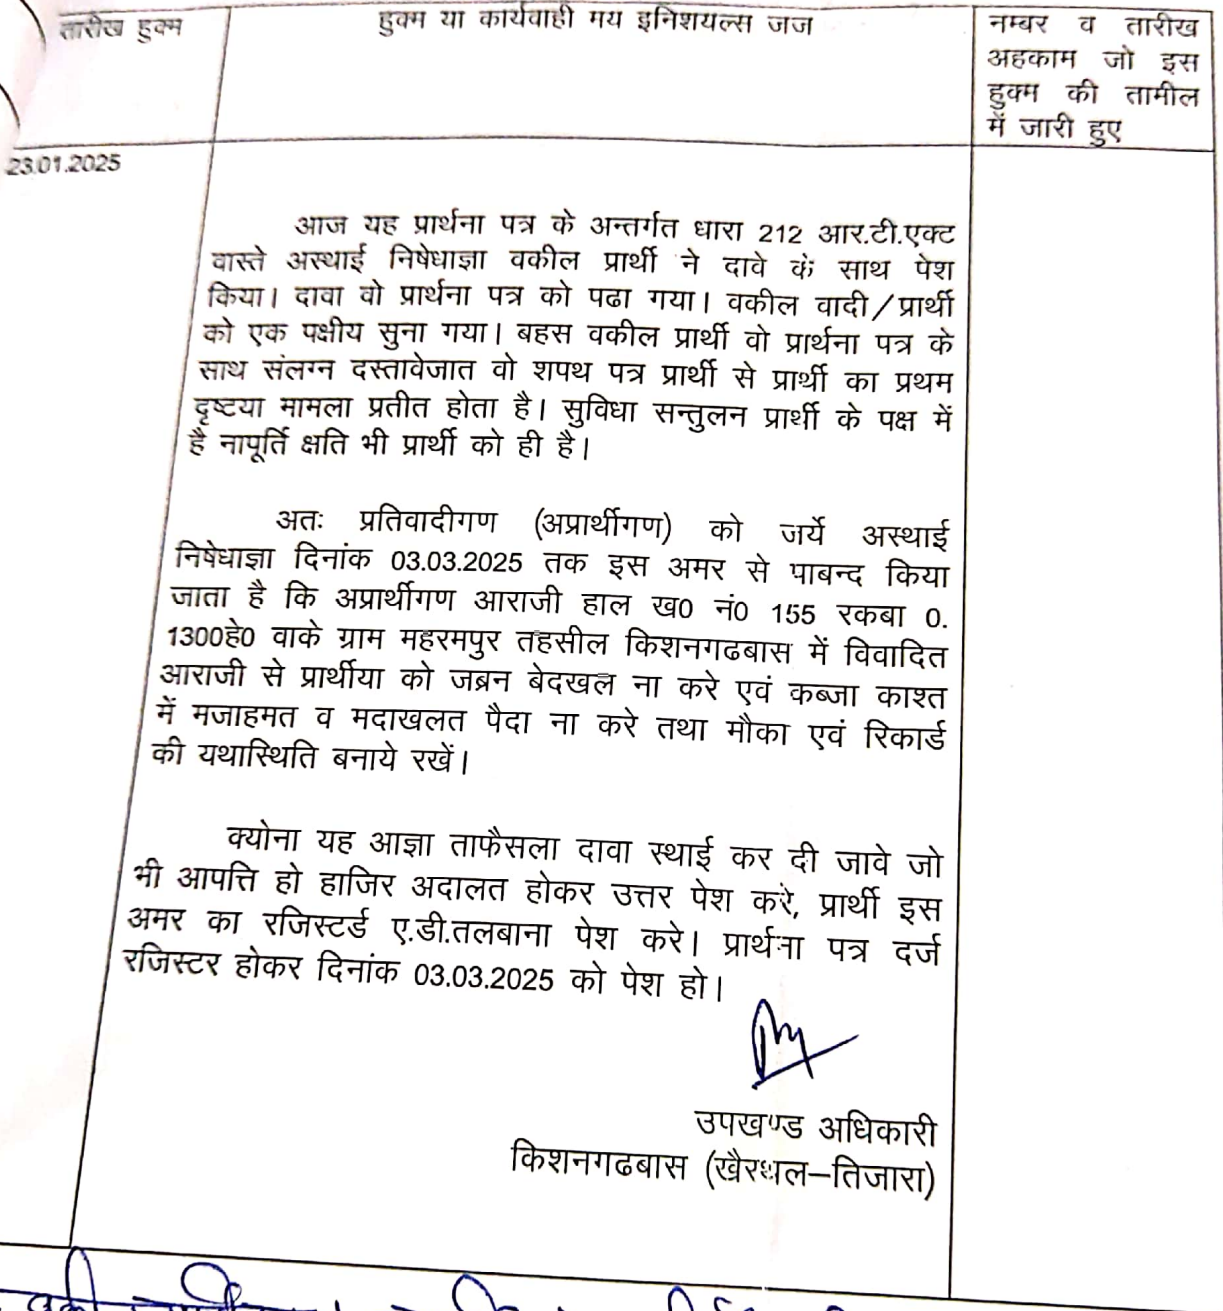 तारीख हुक्म
हुक्म या कार्यवाही मय इनिशयल्स जज
नम्बर व तारीख
अहकाम जो इस
हुक्म की तामील
में जारी हुए
23.01.2025
आज यह प्रार्थना पत्र के अन्तर्गत धारा 212 आर.टी.एक्ट
वास्ते अस्थाई निषेधाज्ञा वकील प्रार्थी ने दावे के साथ पेश
किया। दावा वो प्रार्थना पत्र को पढा गया। वकील वादी/प्रार्थी
को एक पक्षीय सुना गया। बहस वकील प्रार्थी वो प्रार्थना पत्र के
साथ संलग्न दस्तावेजात वो शपथ पत्र प्रार्थी से प्रार्थी का प्रथम
दृष्टया मामला प्रतीत होता है। सुविधा सन्तुलन प्रार्थी के पक्ष में
है नापूर्ति क्षति भी प्रार्थी को ही है।
अतः प्रतिवादीगण (अप्रार्थीगण) को जर्ये अस्थाई
निषेधाज्ञा दिनांक 03.03.2025 तक इस अमर से पाबन्द किया
जाता है कि अप्रार्थीगण आराजी हाल ख0 नं0 155 रकबा 0.
1300हे0 वाके ग्राम महरमपुर तहसील किशनगढबास में विवादित
आराजी से प्रार्थीया को जब्रन बेदखल ना करे एवं कब्जा काश्त
में मजाहमत व मदाखलत पैदा ना करे तथा मौका एवं रिकार्ड
की यथास्थिति बनाये रखें।
क्योना यह आज्ञा ताफैसला दावा स्थाई कर दी जावे जो
भी आपत्ति हो हाजिर अदालत होकर उत्तर पेश करे, प्रार्थी इस
अमर का रजिस्टर्ड ए.डी.तलबाना पेश करे। प्रार्थना पत्र दर्ज
रजिस्टर होकर दिनांक 03.03.2025 को पेश हो।
उपखण्ड अधिकारी
किशनगढबास (खैरथल–तिजारा)